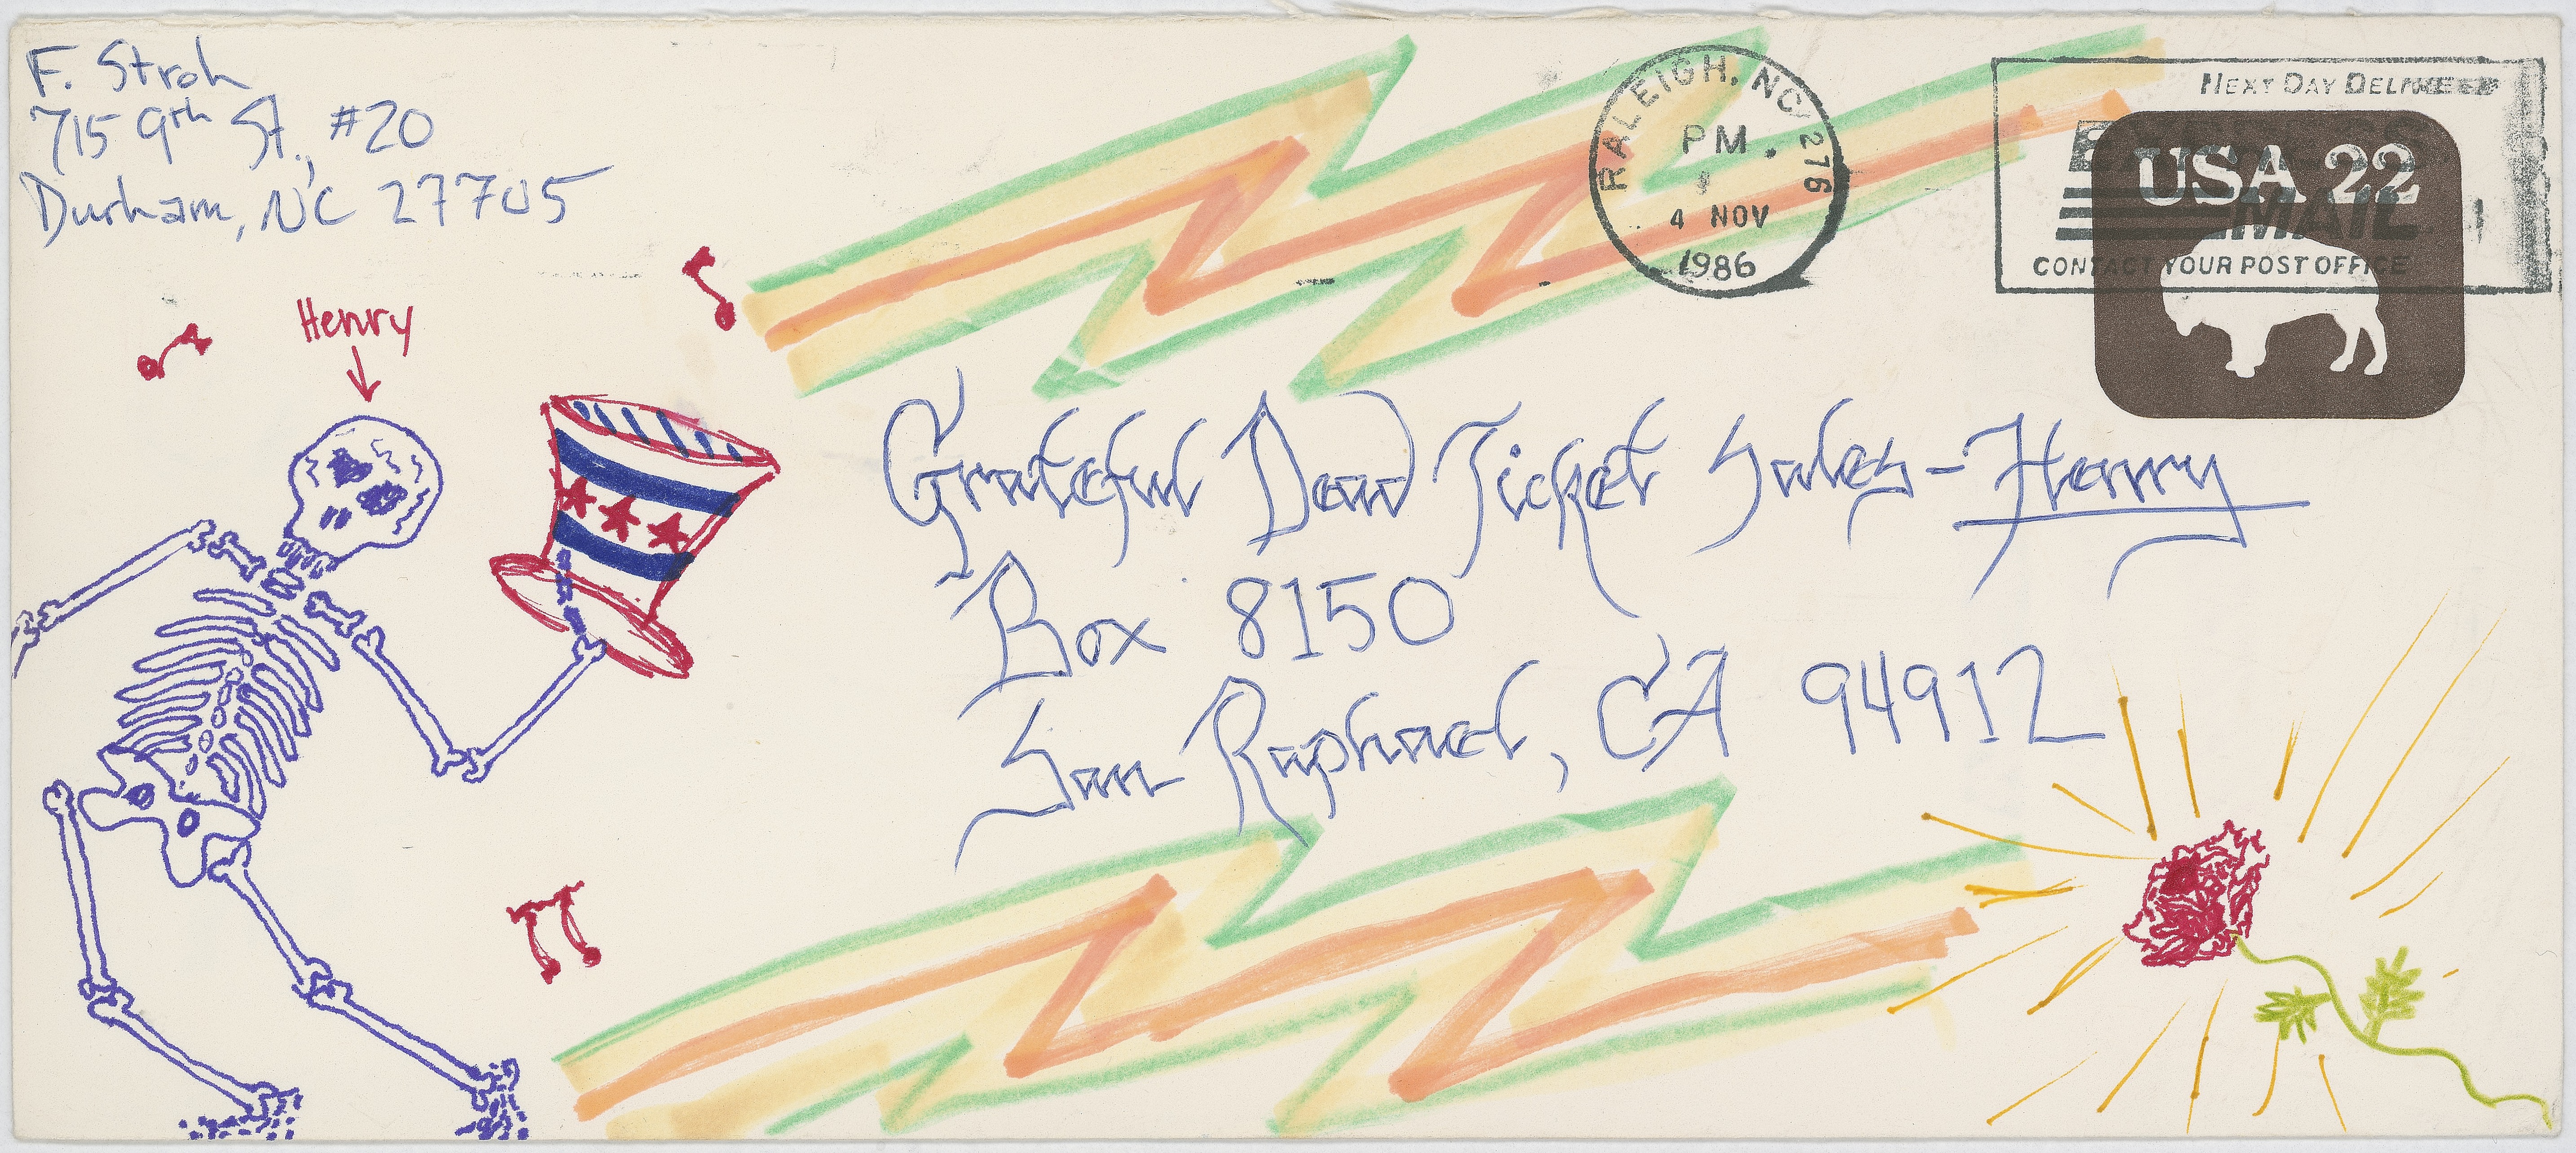 F. Stroh
715 9th St., #20
Durham, NC 27705
RALEIGH, NC 276
PM
4 NOV
1986
NEXT DAY DELIVERY
EXPRESS
MAIL
CONTACT YOUR POST OFFICE
USA 22
Henry
Grateful Dead Ticket Sales - Henry
Box 8150
San Raphael, CA 94912